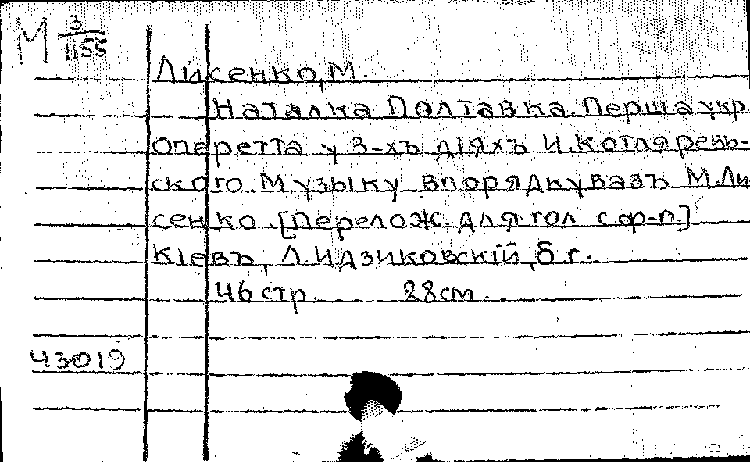 М 3/1155
Лисенко, М.
Наталка Полтавка. Перша укр.
Оперетта у 3-хъ діяхъ И. Котляревь-
ского. Музыку впорядкувавъ М. Ли
сенко. [Перелож. для гол с ф-п.]
Кіевъ, Л. Идзиковскій, б г.
46 стр. 28 см.
43019